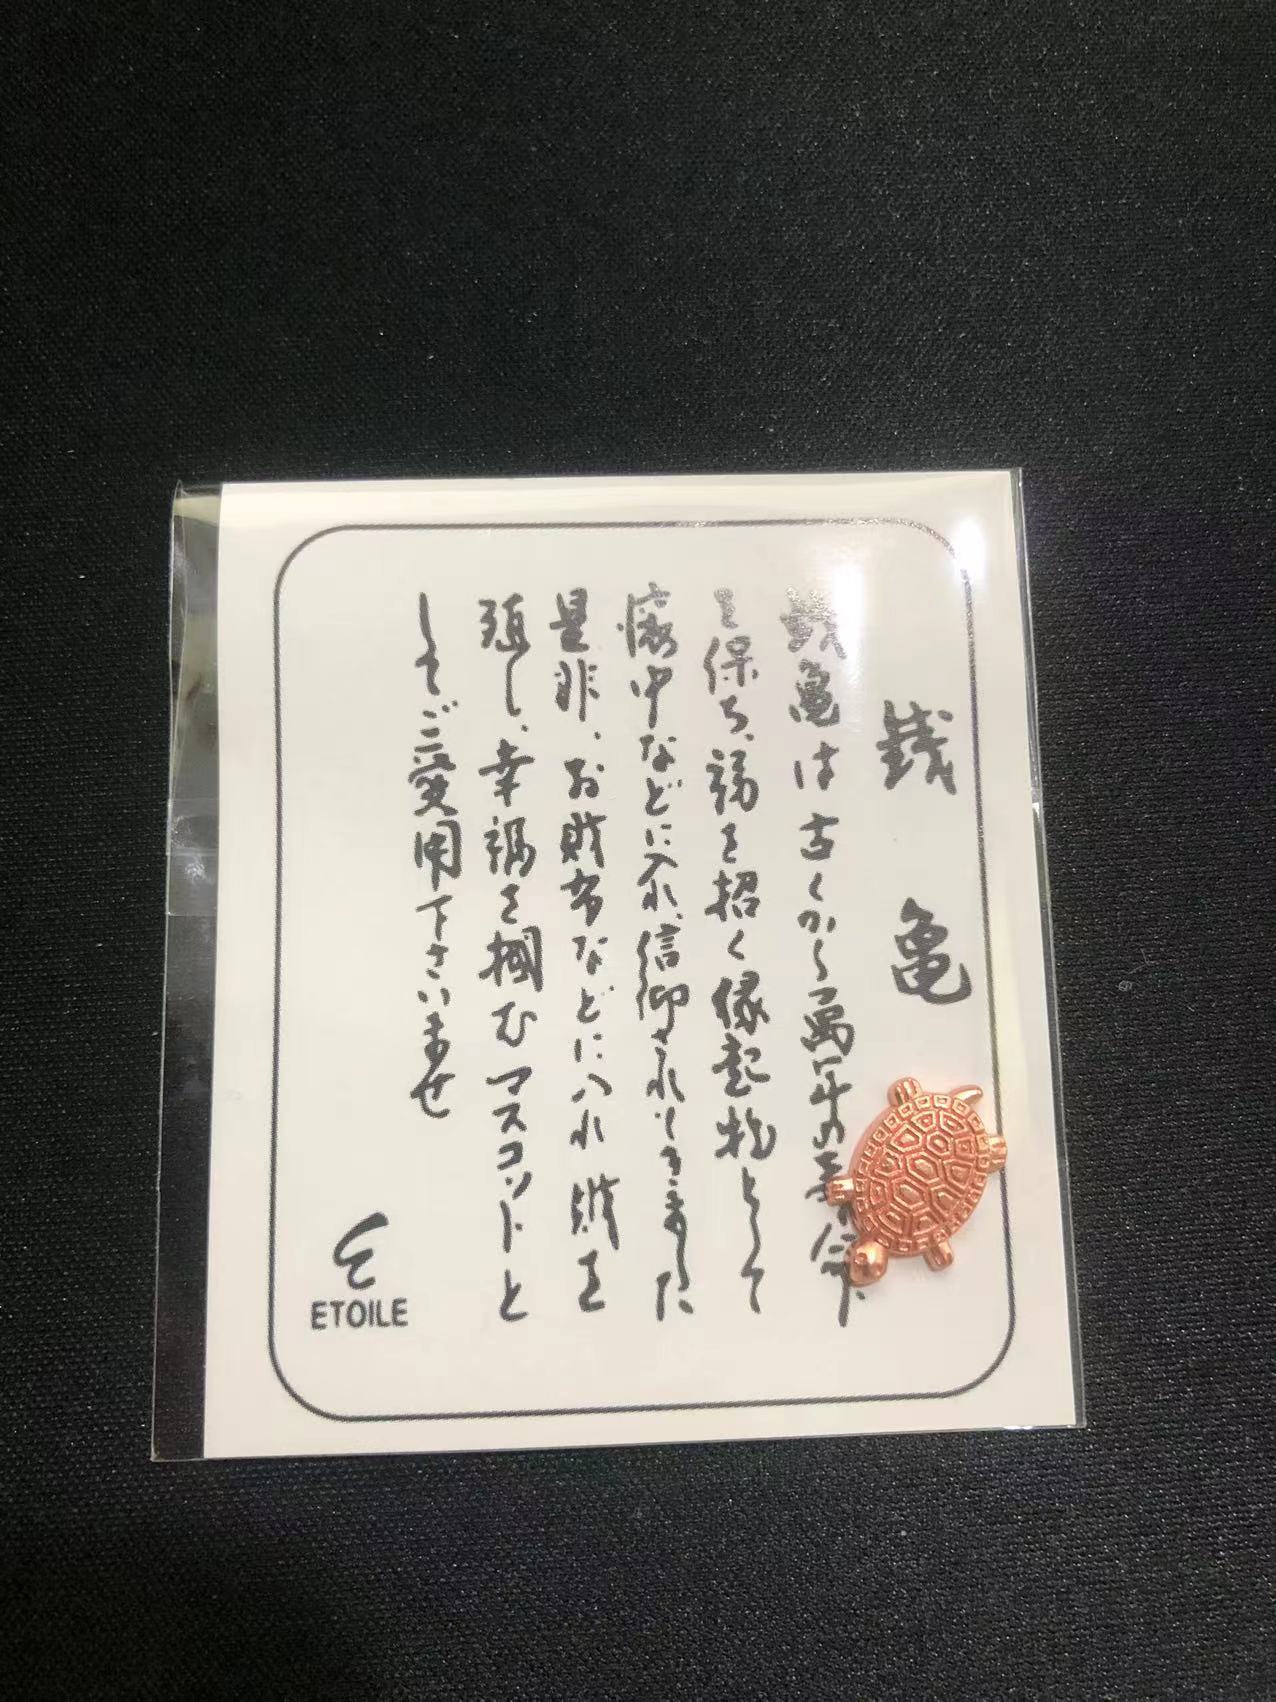 銭亀
銭亀は古くから萬年の寿命
を保ち、福を招く縁起物として
懐中などに入れ、信仰されてきました
是非、お財布などに入れ財を
殖し、幸福を掴むマスコットと
してご愛用下さいませ
ETOILE